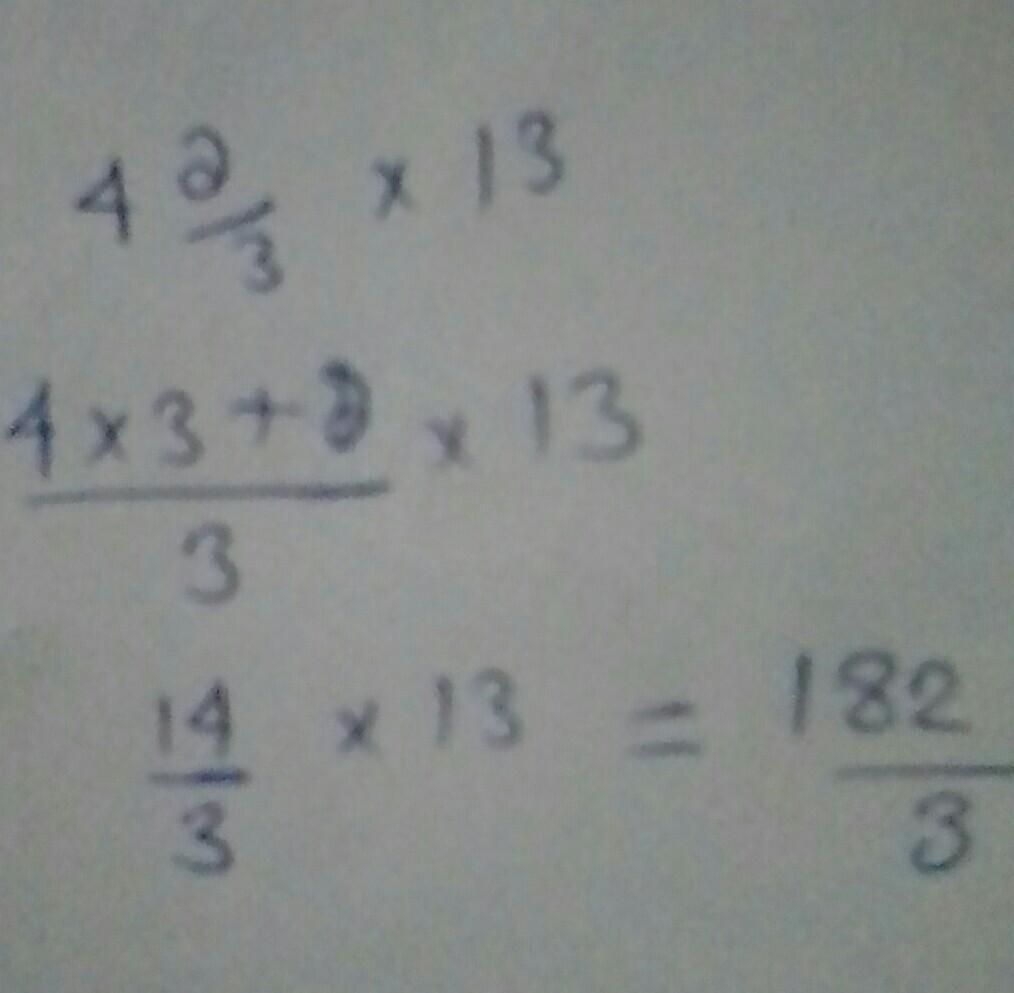 4 2/3 × 13
4×3+2/3 × 13
14/3 × 13 = 182/3